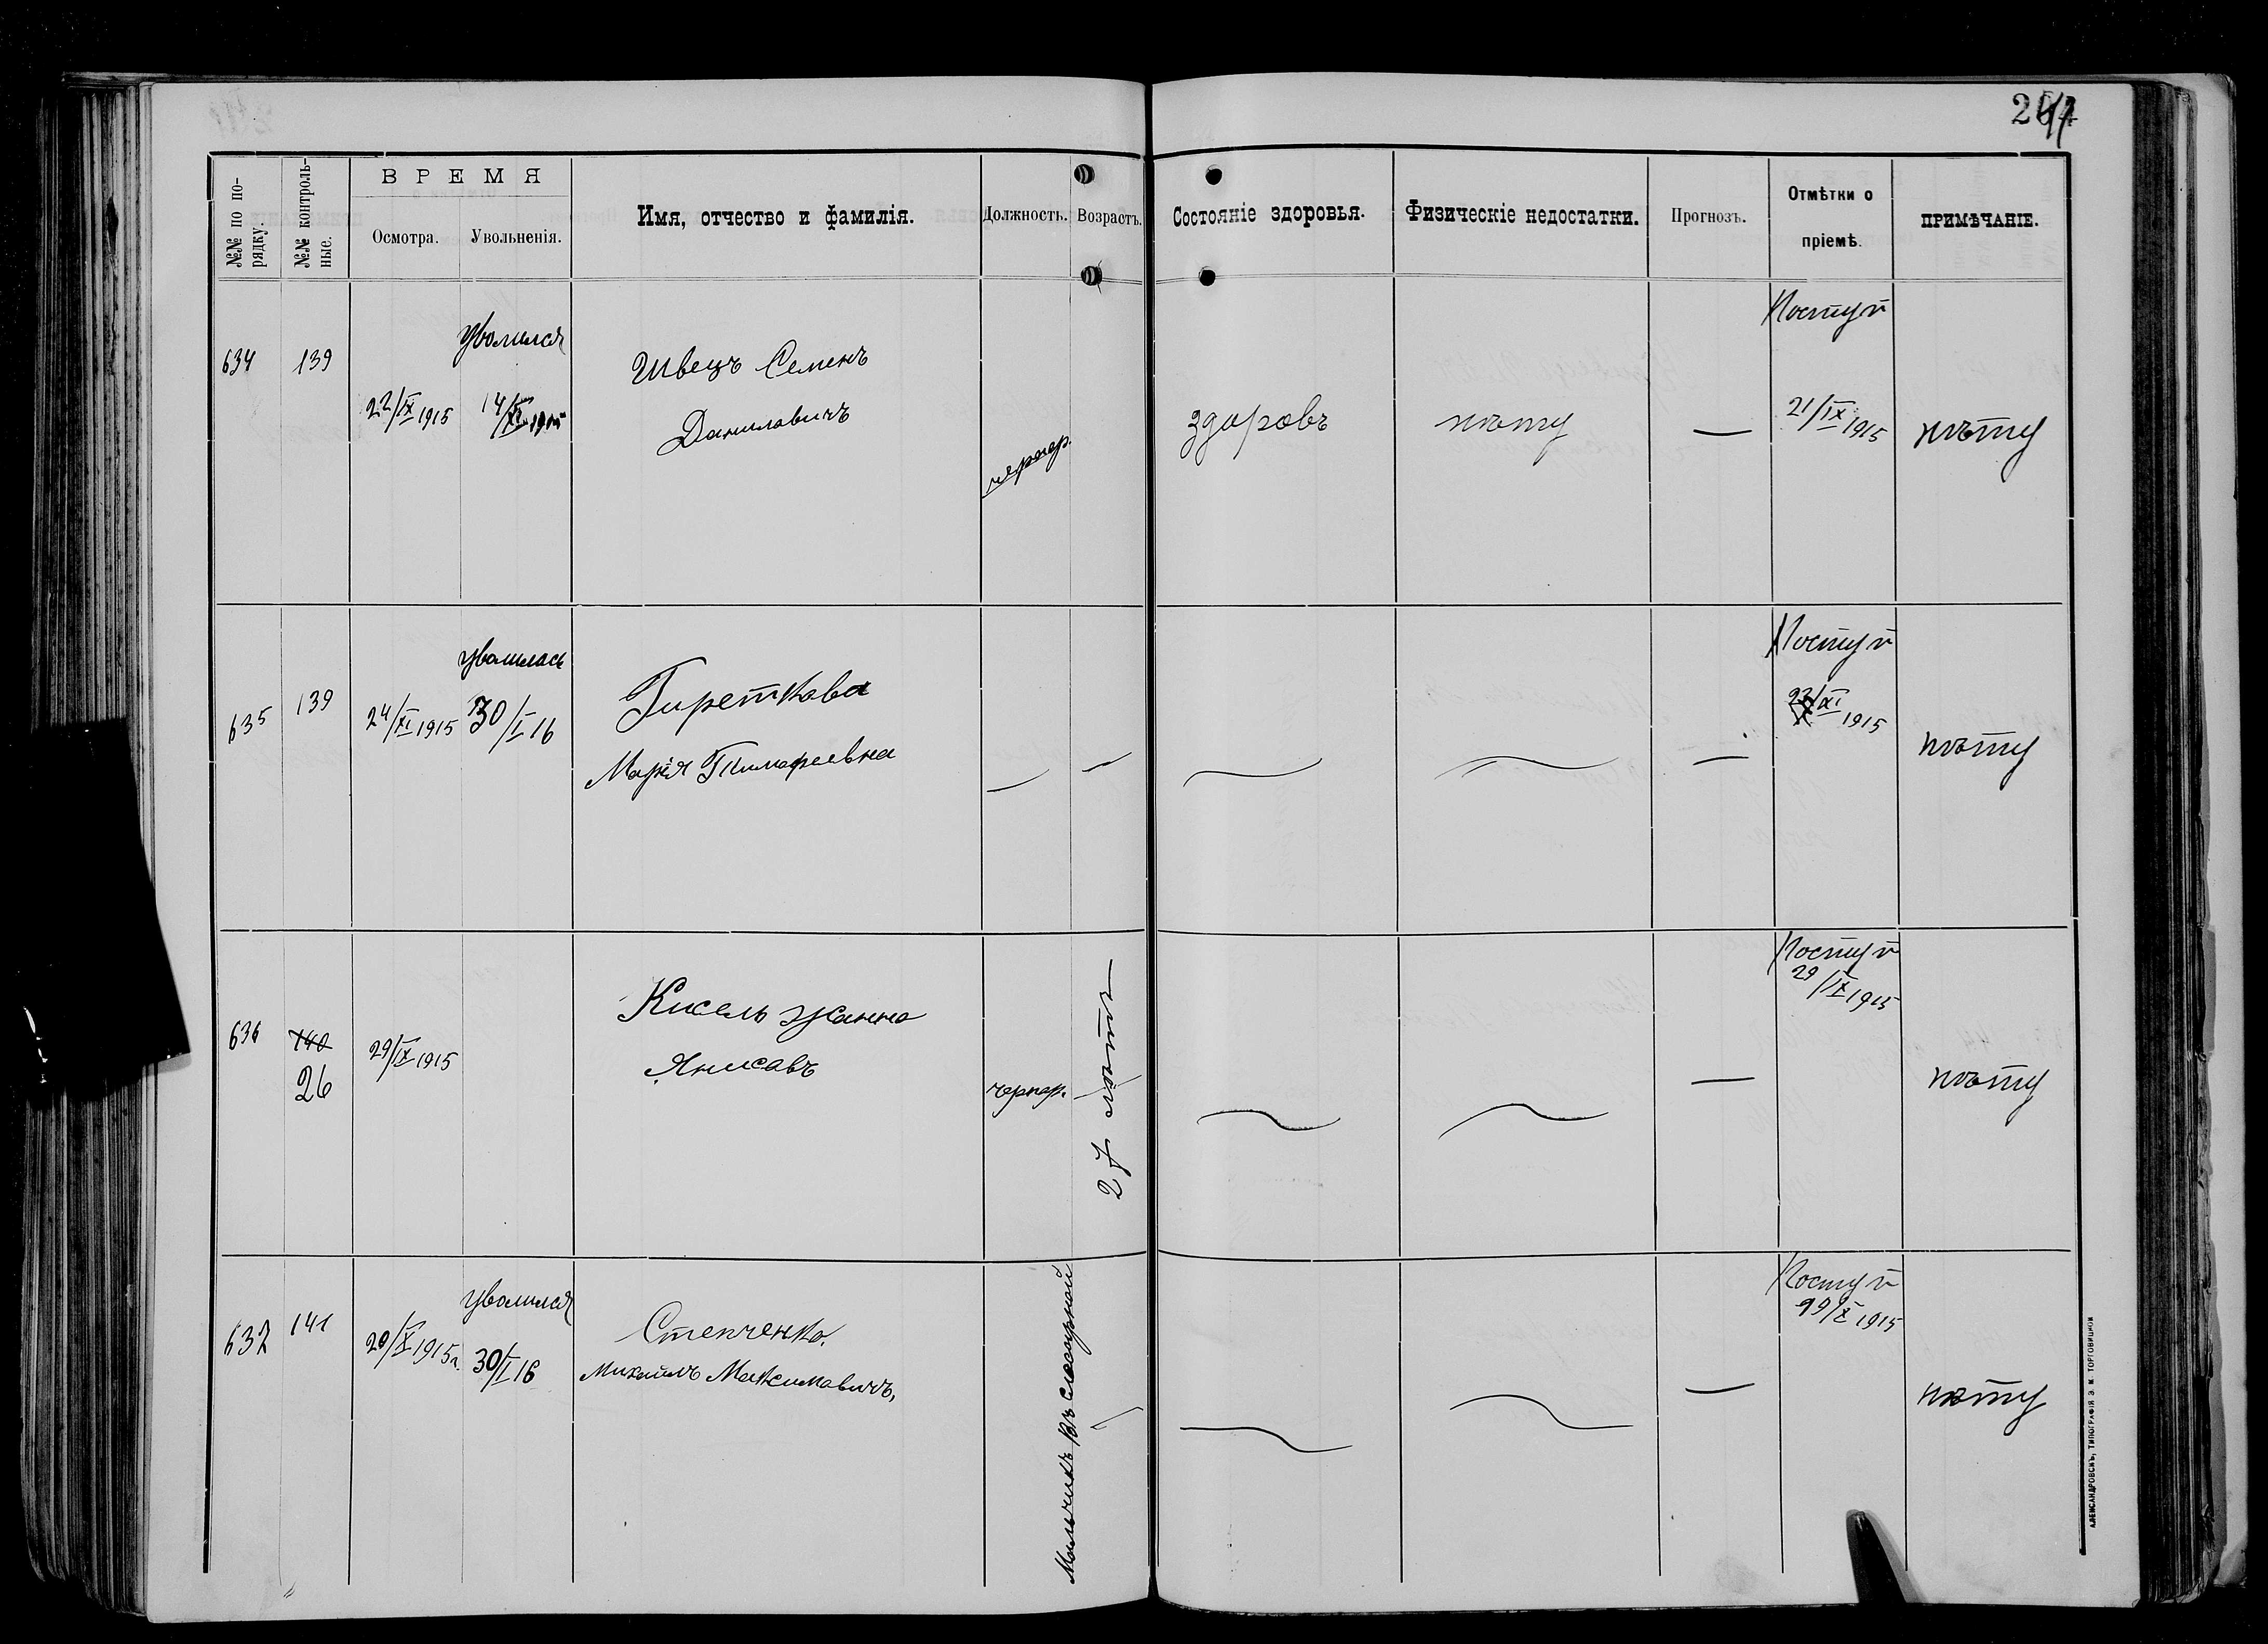 ВРЕМЯ
№№ по по-
рядку.
№№ контроль-
ные.
Осмотра.
Увольненія.
Имя, отчество и фамилія.
Должность.
Возрастъ.
Состояніе здоровья.
Физическіе недостатки.
Прогнозъ.
Отмѣтки о
пріемѣ.
ПРИМѢЧАНІЕ.
634
139
22/IX 1915
уволился
Швецъ Семенъ
Даниловичъ
здоровъ
нѣту
—
Поступ
21/IX 1915
нѣту
635
139
24/XI 1915
уволилась
30/I 16
Гиреткова
Марія Тимофеевна
—
—
—
Поступ
XI 1915
нѣту
636
140
26
29/IX 1915
Кисель Жанна
Янисавъ
чернор.
27 лѣтъ
—
Поступ
29/IX 1915
нѣту
637
141
29/X 1915 г.
уволился
30/I 16
Степченко.
Михаилъ Максимовичъ,
Мальчикъ въ слесарной
—
Поступ
1915
нѣту
АЛЕКСАНДРОВСКЪ, ТИПОГРАФІЯ З. М. ТОРГОВИЦКОЙ